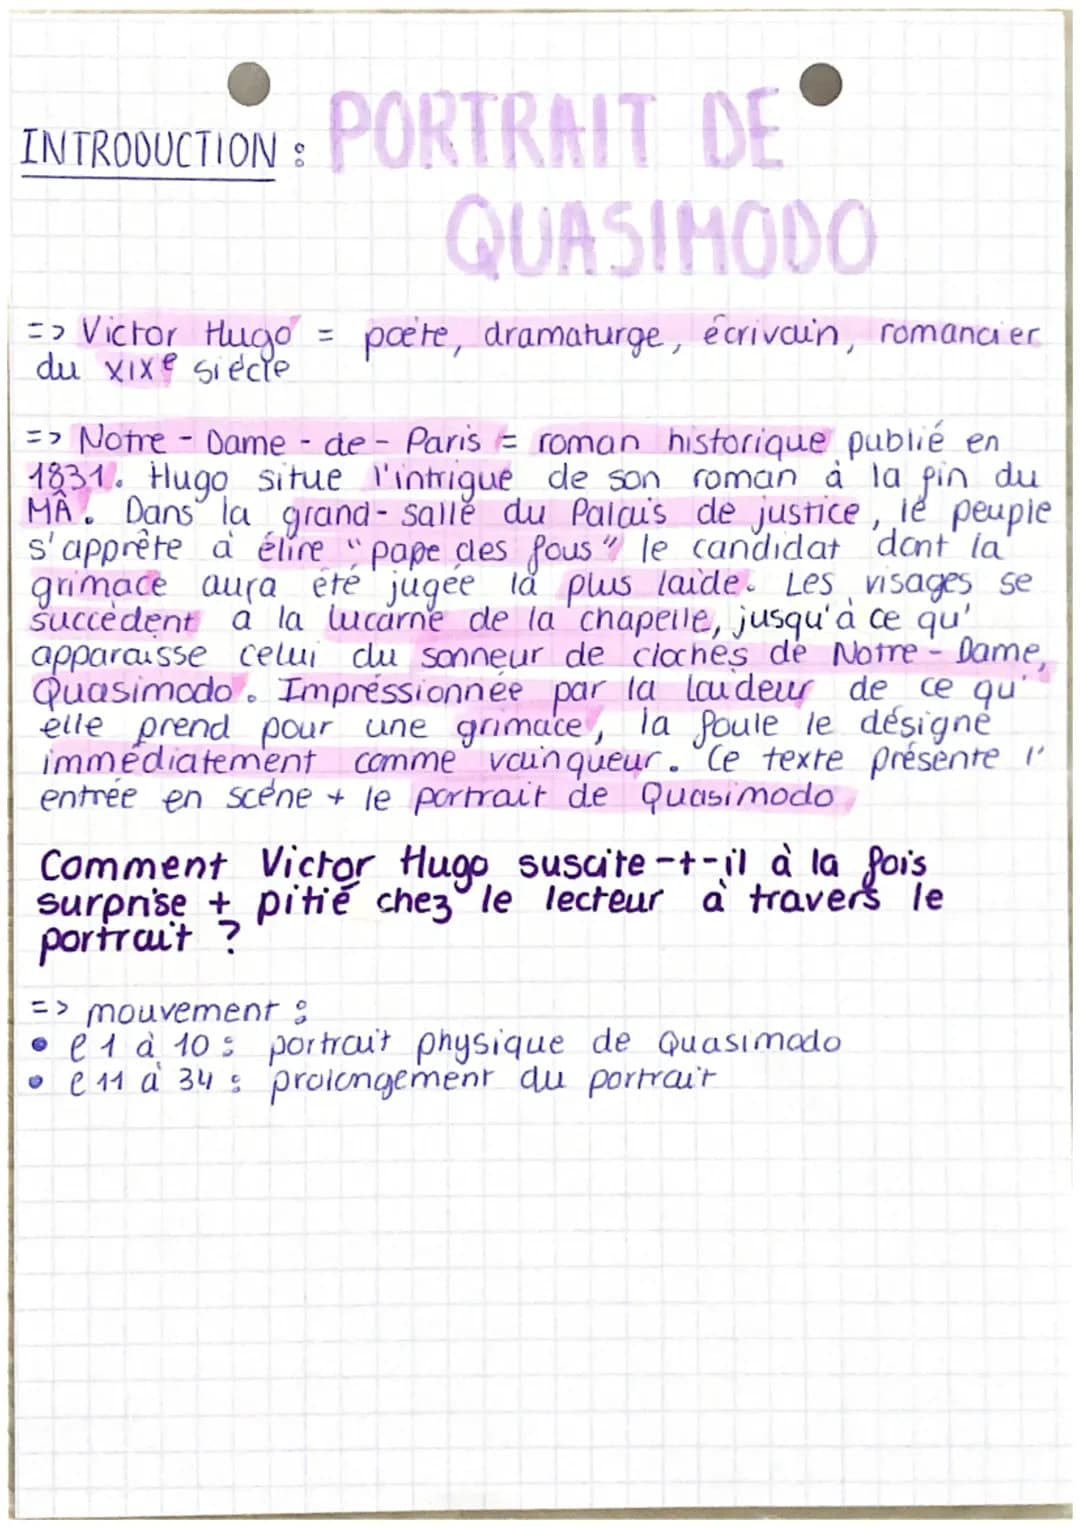 INTRODUCTION : PORTRAIT DE
QUASIMODO
=> Victor Hugo = poète, dramaturge, écrivain, romancier
du XIXe siècle
=> Notre-Dame-de-Paris = roman historique publié en
1831. Hugo situe l'intrigue de son roman à la fin du
MÂ. Dans la grand-salle du Palais de justice, le peuple
s'apprête à élire "pape des fous" le candidat dont la
grimace aura été jugée la plus laide. Les visages se
succèdent a la lucarne de la chapelle, jusqu'à ce qu'
apparaisse celui du sonneur de cloches de Notre-Dame,
Quasimodo. Impréssionnée par la laideur de ce qu'
elle prend pour une grimace, la foule le désigne
immédiatement comme vainqueur. Ce texte présente l'
entrée en scène + le portrait de Quasimodo
Comment Victor Hugo suscite-t-il à la fois
surprise + pitié chez le lecteur à travers le
portrait ?
=> mouvement :
• l 1 à 10 : portrait physique de Quasimodo
• l 11 à 34 : prolongement du portrait